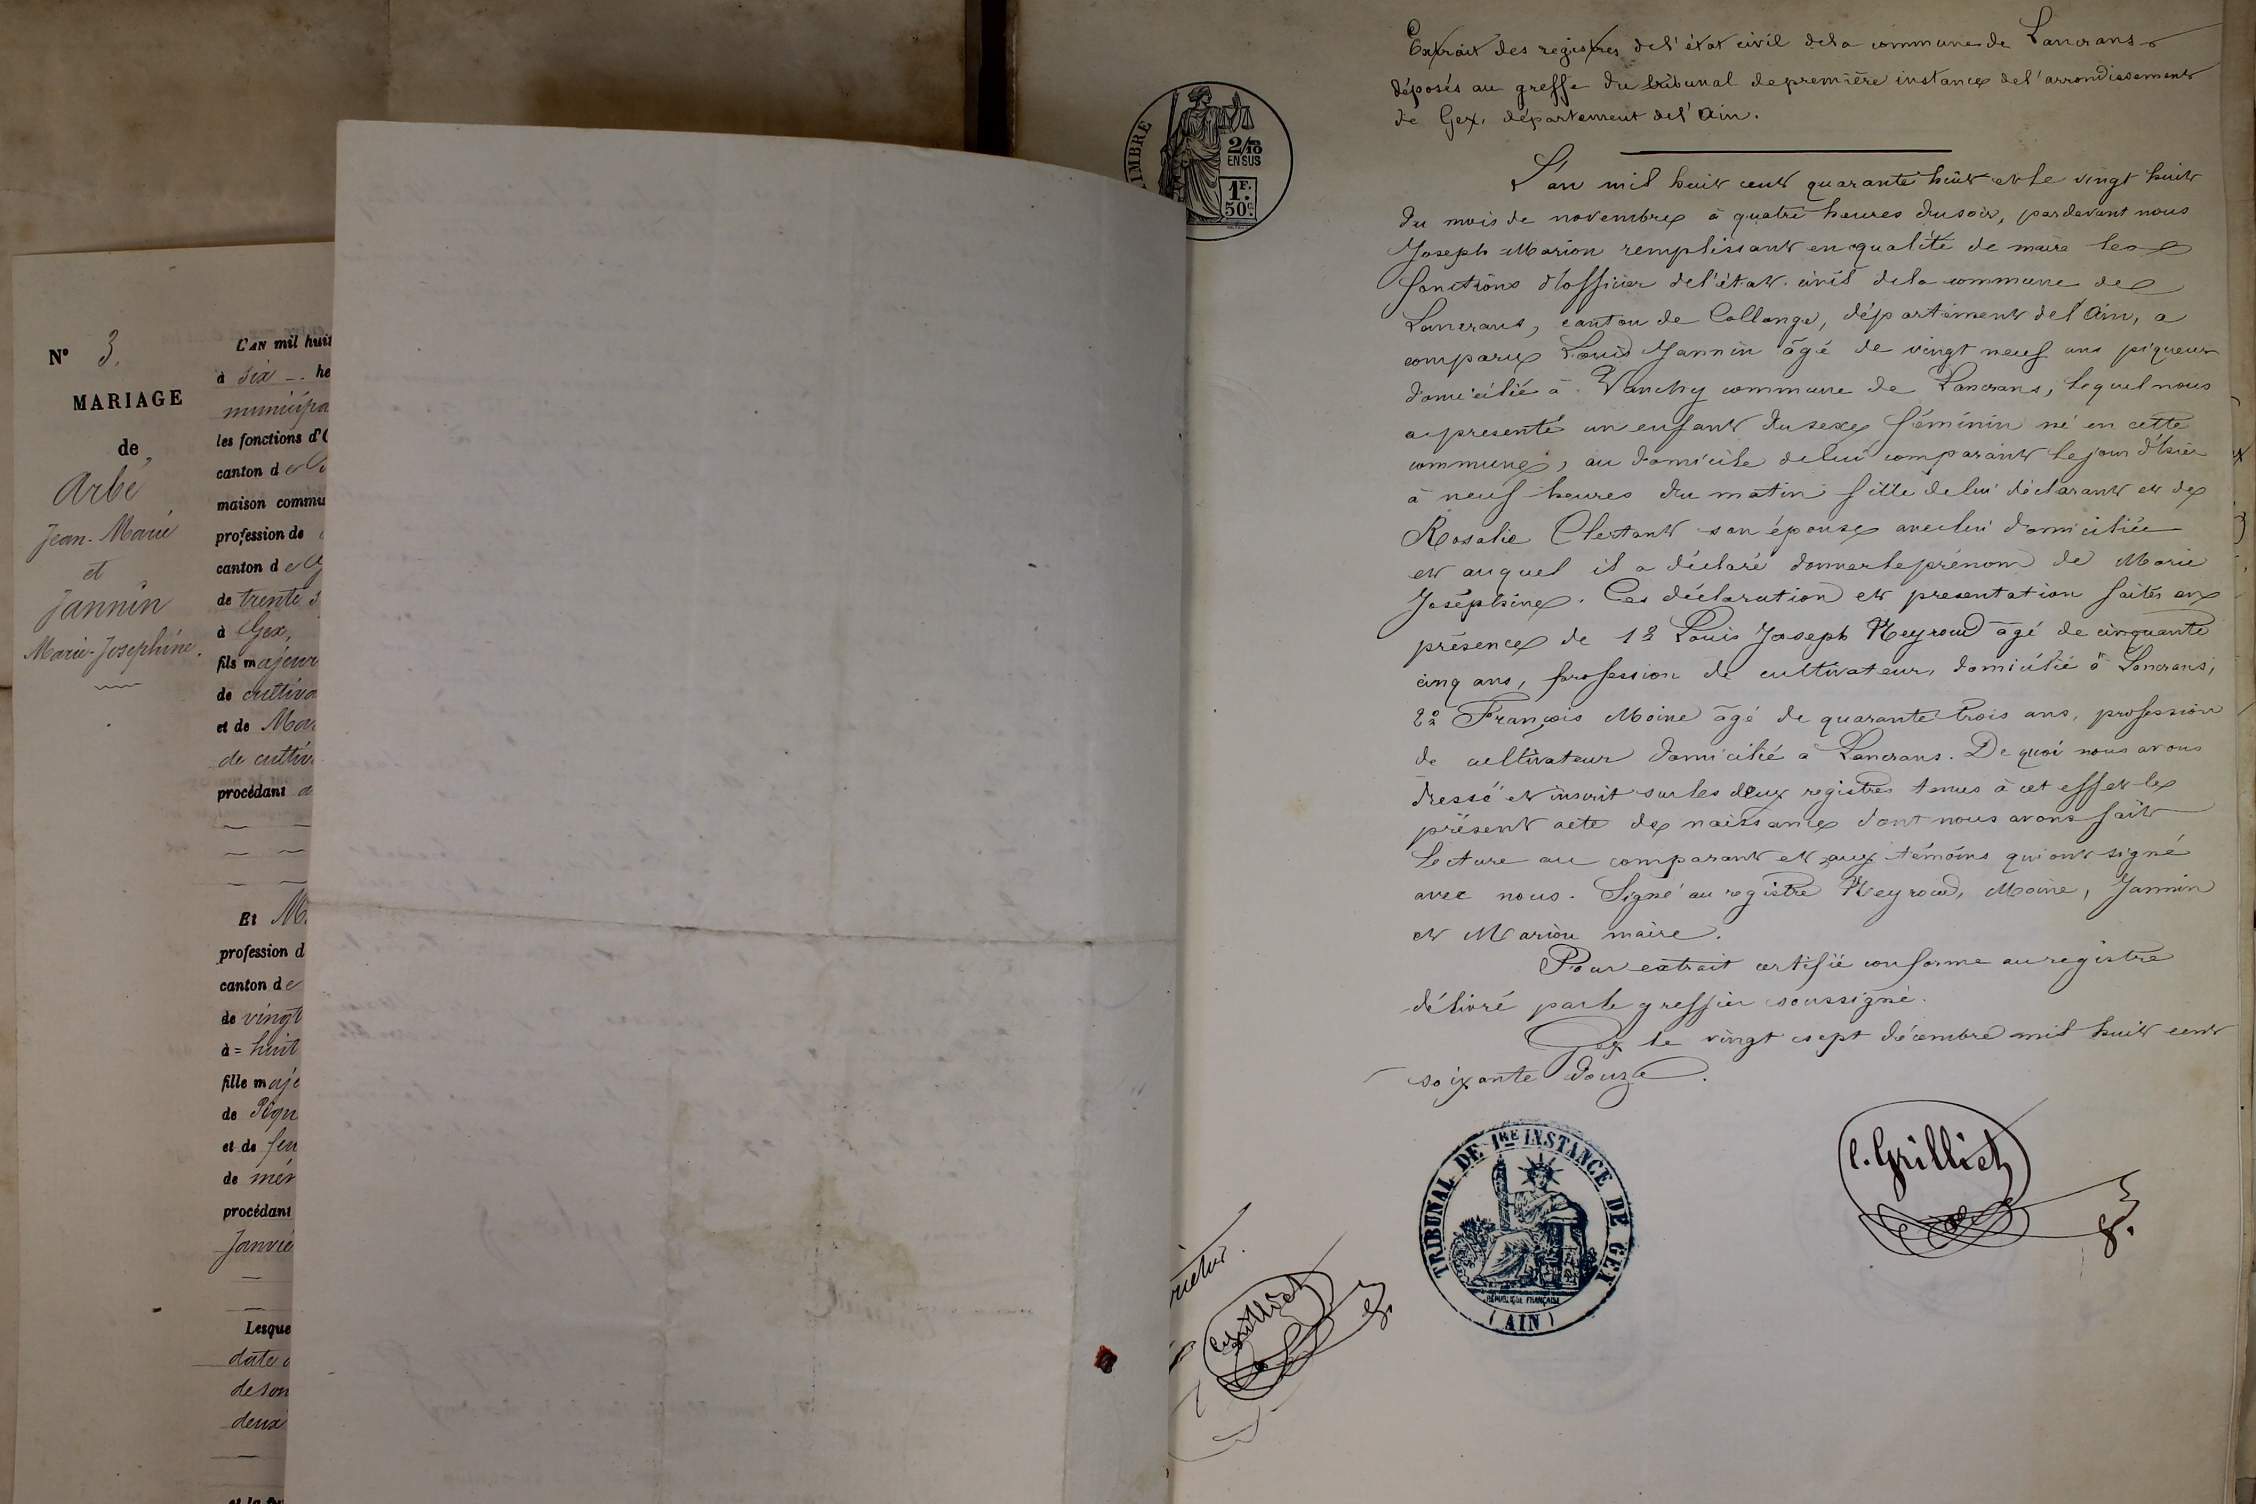 N° 3.
MARIAGE
de
Arbé
Jean-Marie
et
Jannin
Marie-Josephine.
L'AN mil huit
à six - he
municipa
les fonctions d'
canton de
maison commu
profession de
canton de G
de trente s
à Gex,
fils majeur
de cultiva
et de Mar
de cultiv
procédant
Et M
profession d
canton de
de vingt
à = huit
fille maje
de Piqu
et de feu
de mén
procédant
Janvie
Lesque
date d
de son
deux
TIMBRE
2/10
EN SUS
1F.
50c.
Extrait des registres de l'état civil de la commune de Lancrans
déposés au greffe du tribunal de première instance de l'arrondissement
de Gex, département de l'Ain.
L'an mil huit cent quarante huit et le vingt huit
du mois de novembre à quatre heures du soir, pardevant nous
Joseph Marion remplissant en qualité de maire les
fonctions d'officier de l'état civil de la commune de
Lancrans, canton de Collonge, département de l'Ain, a
comparu Louis Jannin âgé de vingt neuf ans piqueur
domicilié à Vanchy commune de Lancrans, lequel nous
a présenté un enfant du sexe féminin né en cette
commune, au domicile de lui comparant le jour d'hier
à neuf heures du matin fille de lui déclarant et de
Rosalie Clertant son épouse avec lui domiciliée
et auquel il a déclaré donner le prénom de Marie
Joséphine. Ces déclaration et présentation faites en
présence de 1° Louis Joseph Neyroud âgé de cinquante
cinq ans, profession de cultivateur, domicilié à Lancrans,
2° François Moine âgé de quarante trois ans, profession
de cultivateur domicilié à Lancrans. De quoi nous avons
dressé et inscrit sur les deux registres tenus à cet effet le
présent acte de naissance dont nous avons fait
lecture au comparant et aux témoins qui ont signé
avec nous. Signé au registre Neyroud, Moine, Jannin
et Marion maire.
Pour extrait certifié conforme au registre
délivré par le greffier soussigné.
Gex le vingt sept décembre mil huit cent
soixante douze.
TRIBUNAL DE 1RE INSTANCE DE GEX
RÉPUBLIQUE FRANÇAISE
(AIN)
C. Grilliet
C. Grilliet